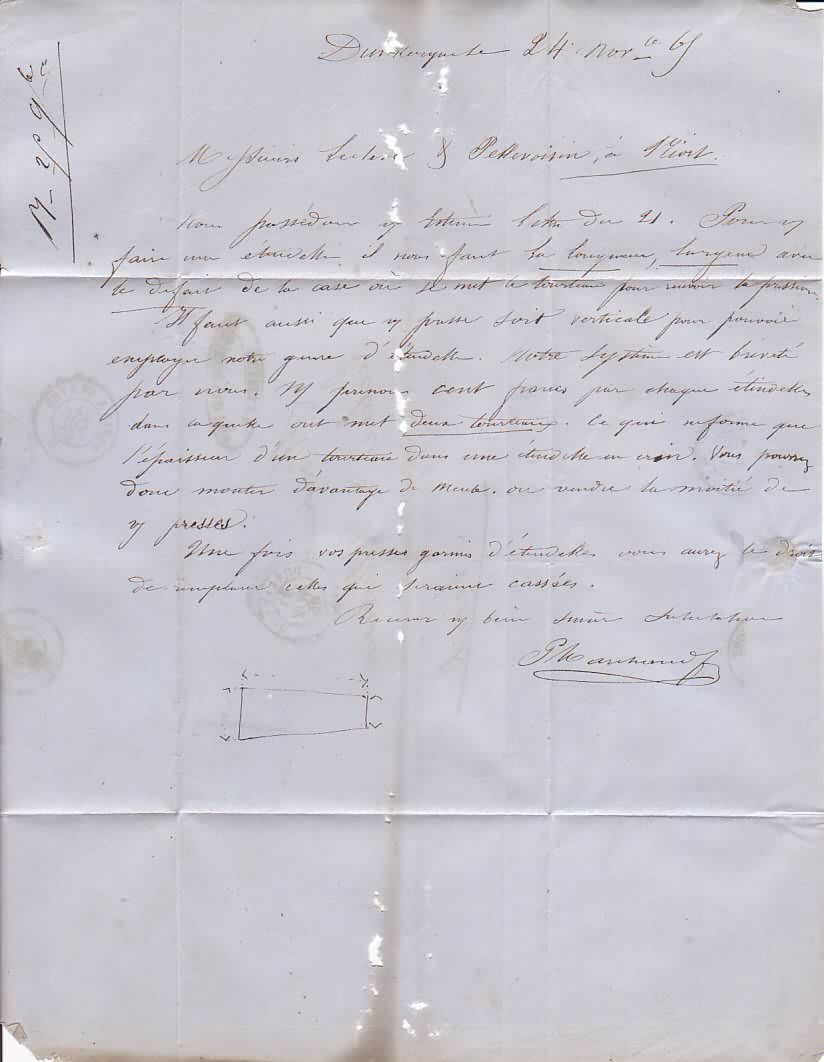 Dunkerque le 24 Nov^bre 65
Messieurs Leclerc & Pellevoisin, à Niort.
Nous possédons v/ estimée lettre du 21. Pour v/
faire une étindelle il nous faut la longueur, largeur avec
le défait de la case où se met le tourteau pour recevoir la pression
Il faut aussi que v/ presse soit verticale pour pouvoir
employer notre genre d'étindelle. Notre système est breveté
par nous. N/ prenons cent francs par chaque étindelles
dans ont met deux tourteaux. Ce qui renferme que
l'épaisseur d'un tourteau dans une étindelle en crin. Vous pourrez
donc monter d'avantage de meule. ou vendre la moitié de
v/ presses.
Une fois vos presses garnis d'étindelles vous aurez le droit
de remplacer celles qui seraient cassées.
Recevez n/ bien sincère salutation
P Marchand